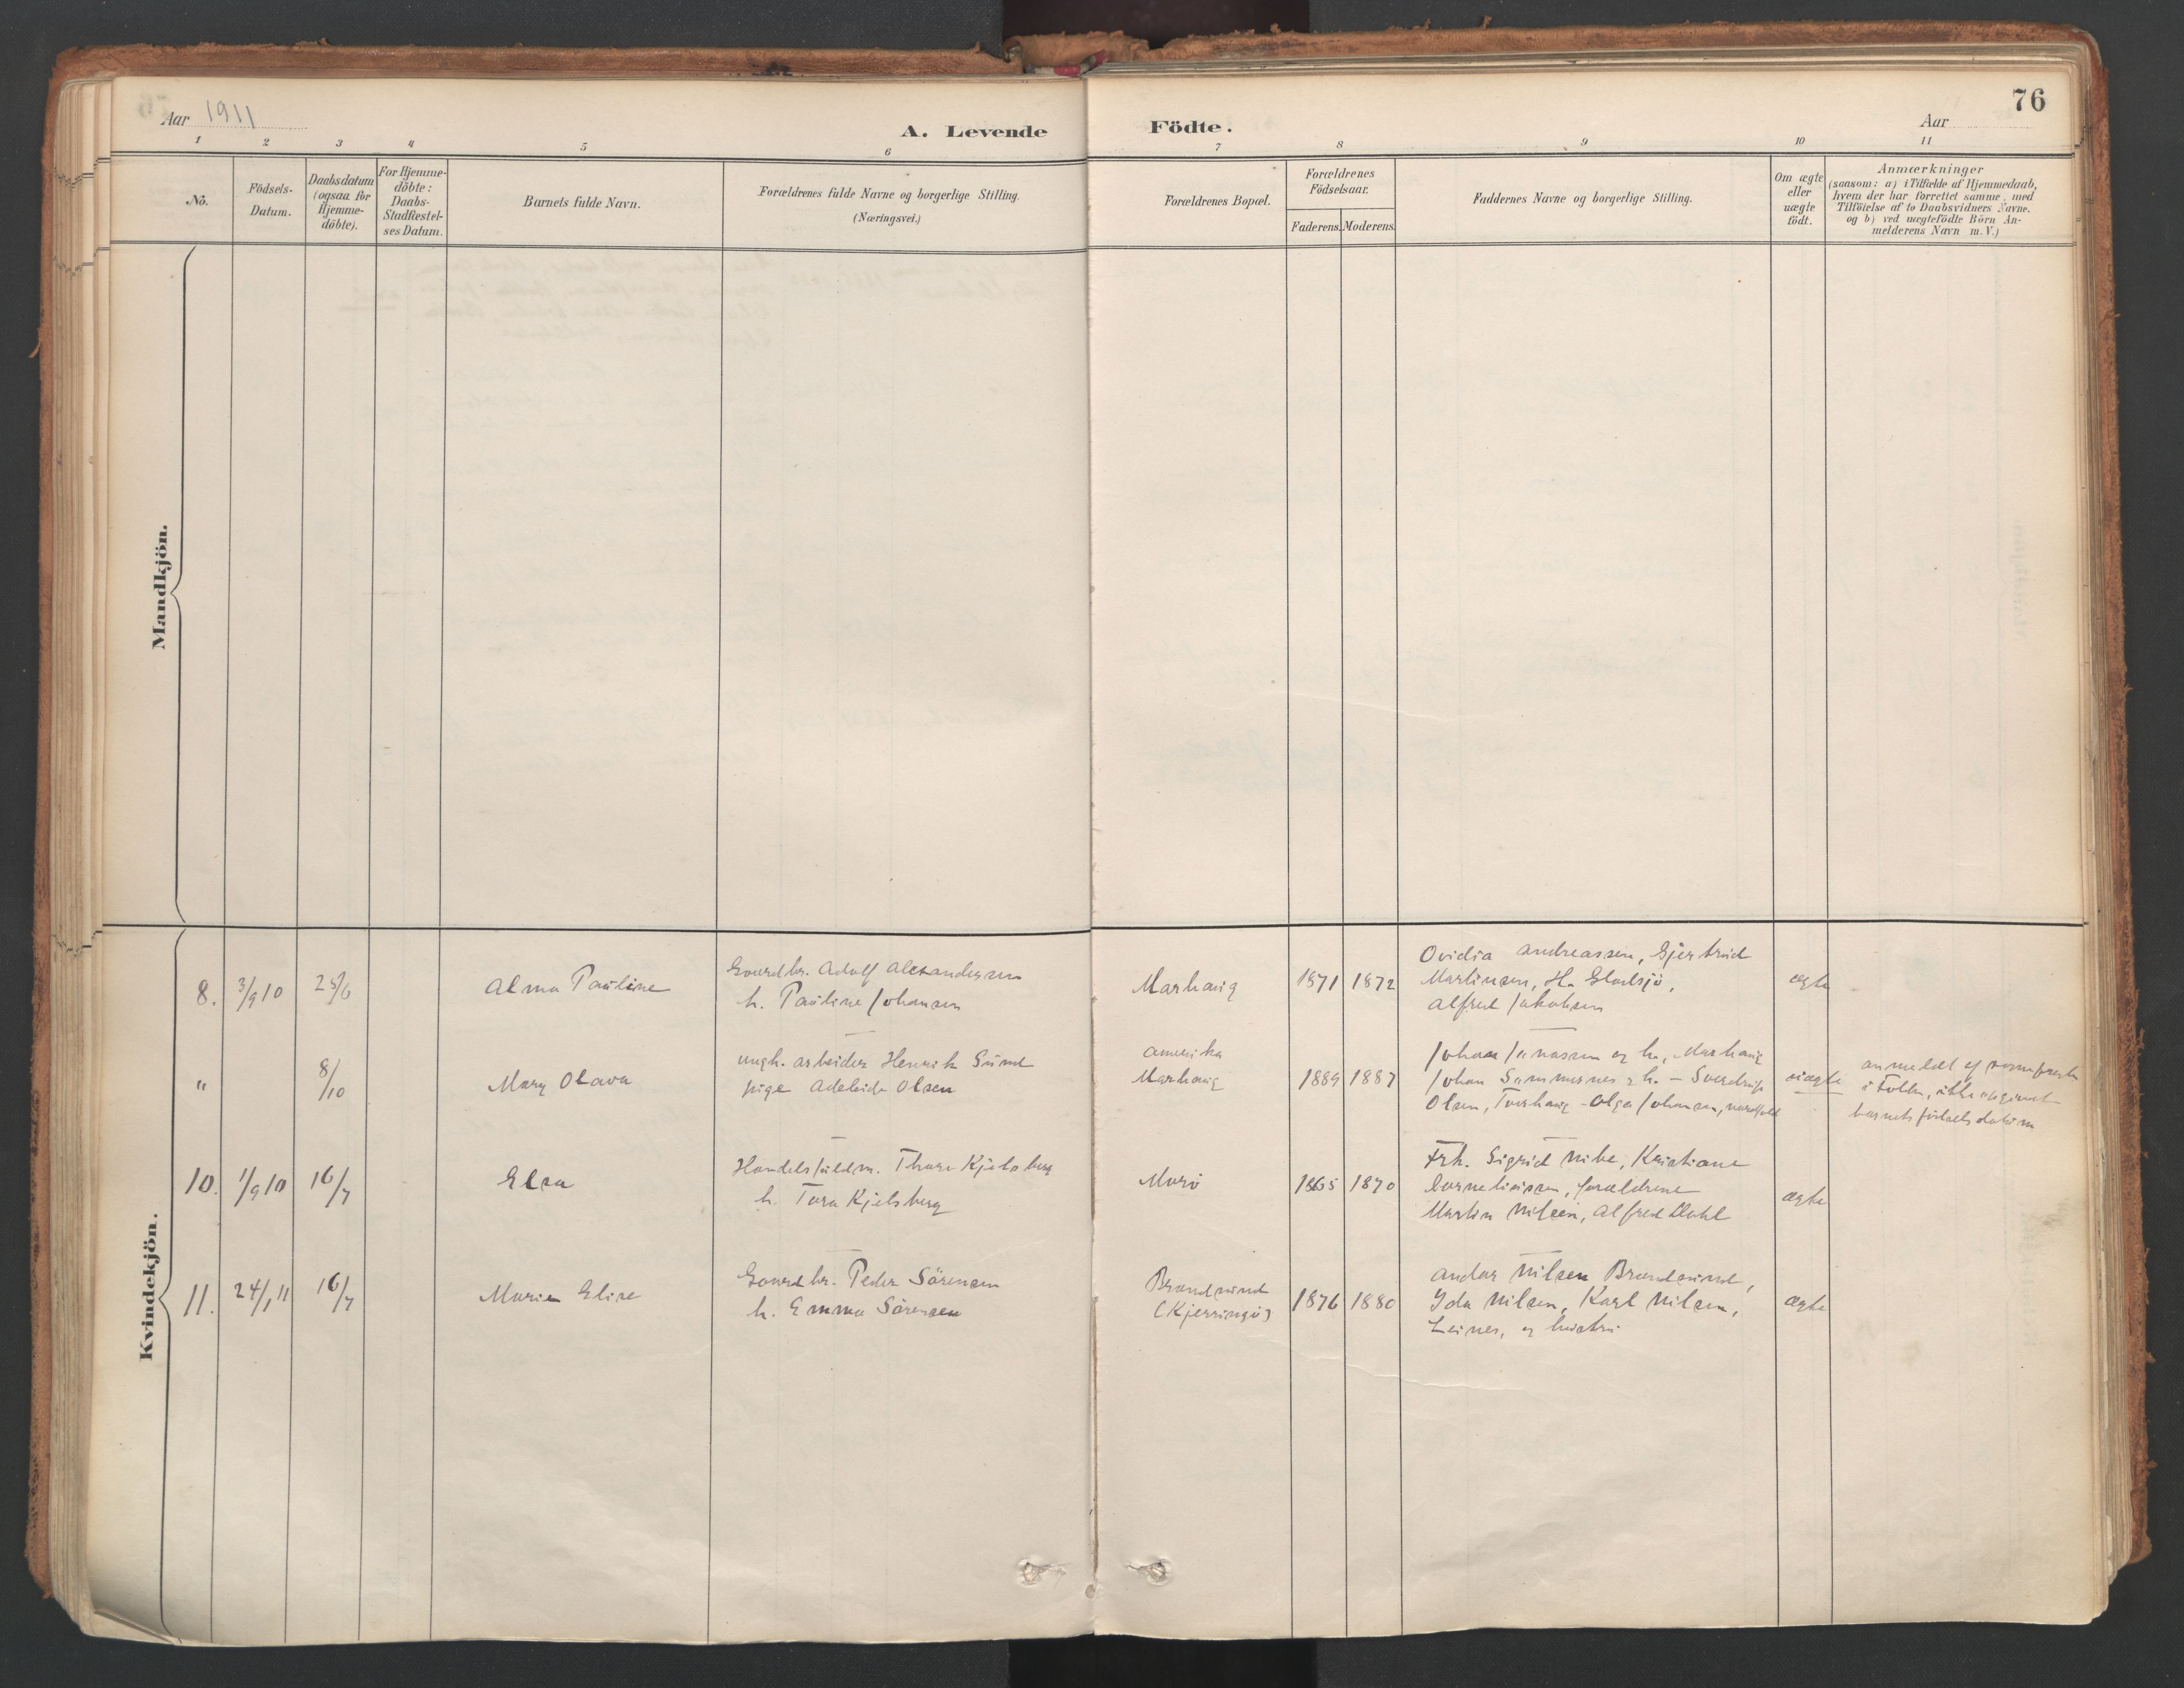 76
Aar 1911
A. Levende Födte.
Aar
1 2 3 4 5 6 7 8 9 10 11
No.
Födsels-Datum.
Daabsdatum (ogsaa for Hjemme-döbte).
For Hjemme-döbte: Daabs-Stadfæstel-ses Datum.
Barnets fulde Navn.
Forældrenes fulde Navne og borgerlige Stilling.
(Næringsvei.)
Forældrenes Bopæl.
Forældrenes Födselsaar.
Faderens. Moderens.
Faddernes Navne og borgerlige Stilling.
Om ægte eller uægte födt.
Anmærkninger
(saasom: a) i Tilfælde af Hjemmedaab,
hvem der har forrettet samme, med
Tilföielse af to Daabsvidners Navne.
og b) ved uægtefödte Börn An-
melderens Navn m. V.)
Mandkjön.
Kvindekjön.
8. 3/9 10 25/6 Alma Pauline
Gaardbr. Adolf Alexandersen
h. Pauline Johansen
Marhaug 1871 1872
Ovidia Andreassen, Gjertrud
Martinsen, H.
Alfred Jakobsen
ægte
" 8/10 Mary Olava
ungk. arbeider Henrik Sund
pige Adelaide Olsen
Amerika
Marhaug 1889 1887
Johan Jonassen og h., Marhaug
Johan h. - Sverdrup
Olsen, - Olga Johansen,
uægte
anmeldt af
i Folden, ikke opgivet
barnets födselsdatum
10. 1/9 10 16/7 Elsa
Handelsfuldm. Thore Kjelsberg
h. Tora Kjelsberg
Morö 1865 1870
Frk. Sigrid Kristiane
Corneliussen, forældrene
Martin Nilsen, Alfred Dahl
ægte
11. 24/1 11 16/7 Marie Elise
Gaardbr. Peder Sörensen
h. Emma Sörensen
Brandsund
(Kjerringö) 1876 1880
Andor Nilsen Brandsund,
Ida Nilsen, Karl Nilsen,
Leines, og hustru
ægte